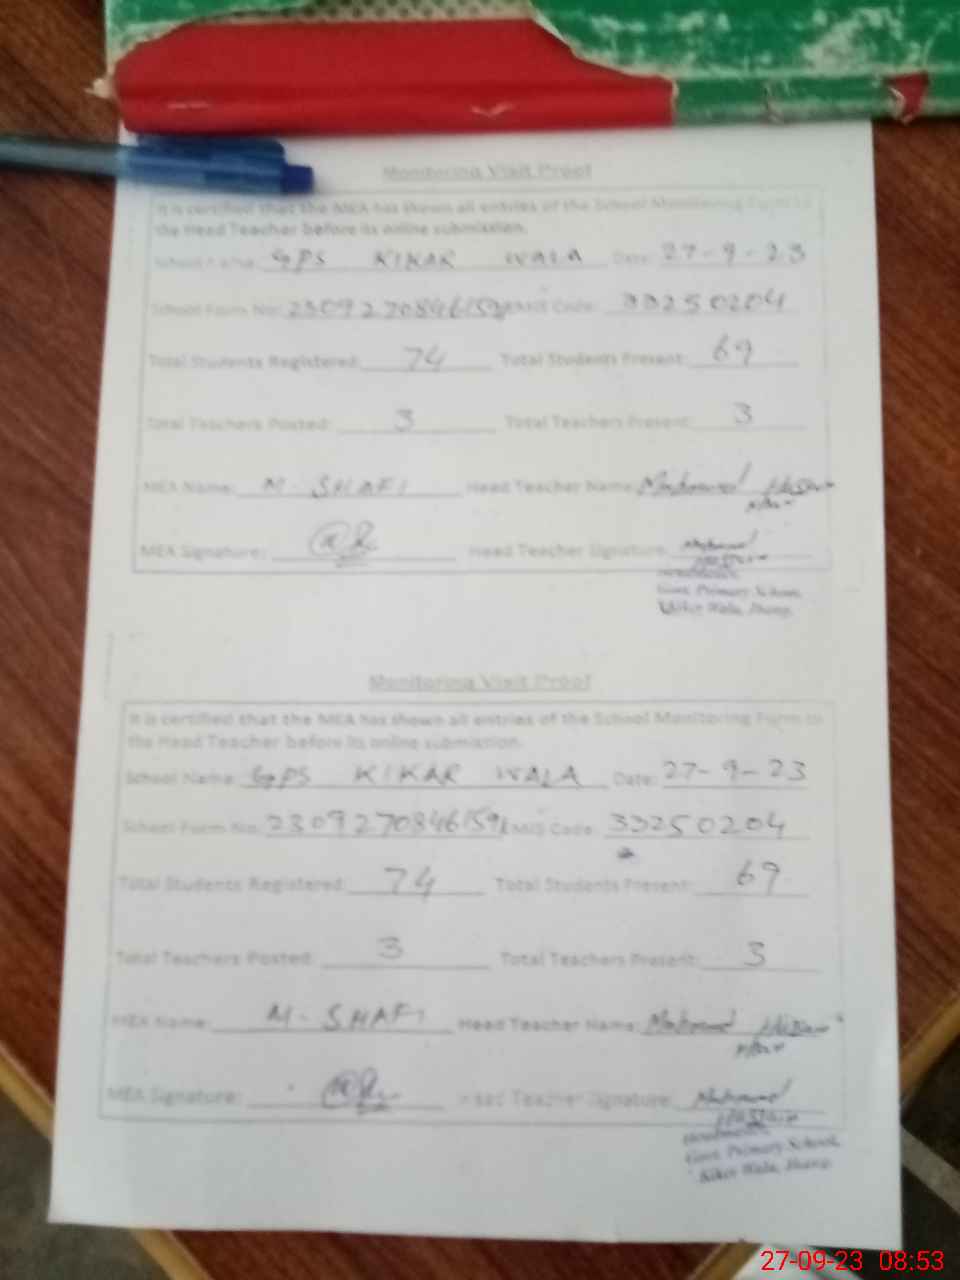 Monitoring Visit Proof
It is certified that the MEA has shown all entries of the School Monitoring Form to
the Head Teacher before its online submission.
School Name: GPS KIKAR WALA Date: 27-9-23
School Form No: 2309270846159 EMIS Code: 33250204
Total Students Registered: 74 Total Students Present: 69
Total Teachers Posted: 3 Total Teachers Present: 3
MEA Name: M. SHAFI Head Teacher Name:
MEA Signature: Head Teacher Signature:
Govt. Primary School,
Kiker Wala, Jhang.
Monitoring Visit Proof
It is certified that the MEA has shown all entries of the School Monitoring Form to
the Head Teacher before its online submission.
School Name: GPS KIKAR WALA Date: 27-9-23
School Form No: 2309270846159 EMIS Code: 33250204
Total Students Registered: 74 Total Students Present: 69
Total Teachers Posted: 3 Total Teachers Present: 3
MEA Name: M. SHAFI Head Teacher Name:
MEA Signature: Head Teacher Signature:
Govt. Primary School,
Kiker Wala, Jhang.
27-09-23 08:53